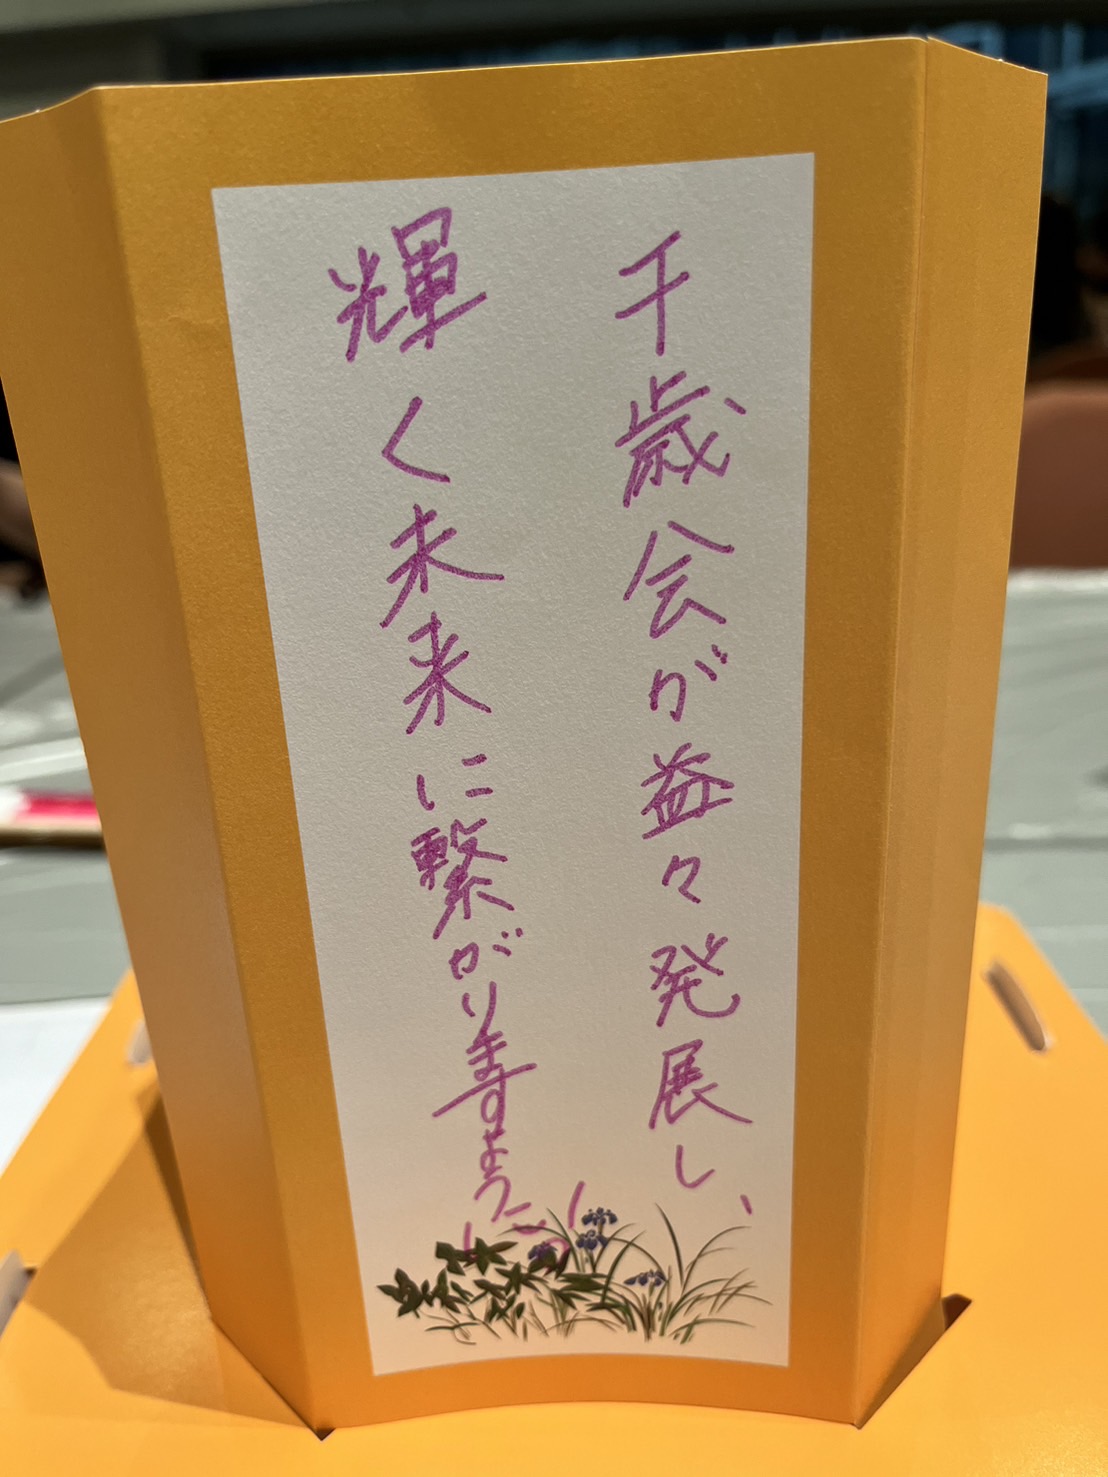 千歳会が益々発展し、
輝く未来に繋がりますように